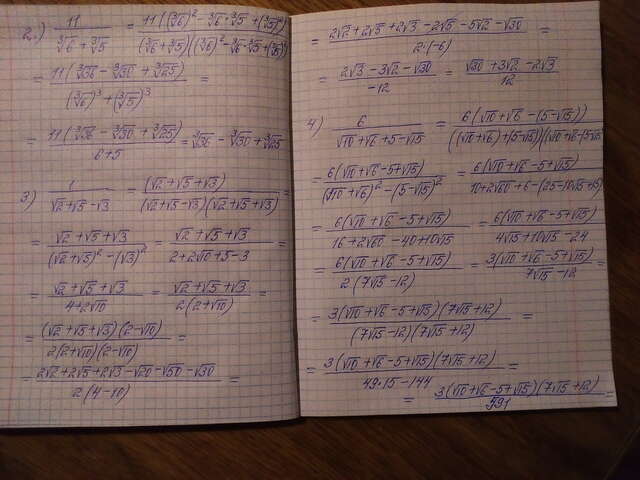 2.) 11/(∛6 + ∛5) = 11((∛6)² - ∛6·∛5 + (∛5)²)/((∛6+∛5)((∛6)² - ∛6·∛5 + (∛5)²)) =
= 11(∛36 - ∛30 + ∛25)/((∛6)³ + (∛5)³) =
= 11(∛36 - ∛30 + ∛25)/(6+5) = ∛36 - ∛30 + ∛25
3) 1/(√2+√5-√3) = (√2+√5+√3)/((√2+√5-√3)(√2+√5+√3)) =
= (√2+√5+√3)/((√2+√5)² - (√3)²) = (√2+√5+√3)/(2+2√10+5-3) =
= (√2+√5+√3)/(4+2√10) = (√2+√5+√3)/(2(2+√10)) =
= (√2+√5+√3)(2-√10)/(2(2+√10)(2-√10)) =
= (2√2+2√5+2√3-√20-√50-√30)/(2(4-10)) =
= (2√2+2√5+2√3-2√5-5√2-√30)/(2·(-6)) =
= (2√3-3√2-√30)/(-12) = (√30+3√2-2√3)/12
4) 6/(√10+√6+5-√15) = 6(√10+√6-(5-√15))/(((√10+√6)+(5-√15))(√10+√6-(5-√15
= 6(√10+√6-5+√15)/((√10+√6)² - (5-√15)²) = 6(√10+√6-5+√15)/(10+2√60+6-(25-10√15+15)
= 6(√10+√6-5+√15)/(16+2√60-40+10√15) = 6(√10+√6-5+√15)/(4√15+10√15-24
= 6(√10+√6-5+√15)/(2(7√15-12)) = 3(√10+√6-5+√15)/(7√15-12) =
= 3(√10+√6-5+√15)(7√15+12)/((7√15-12)(7√15+12)) =
= 3(√10+√6-5+√15)(7√15+12)/(49·15-144) =
= 3(√10+√6-5+√15)(7√15+12)/591 =